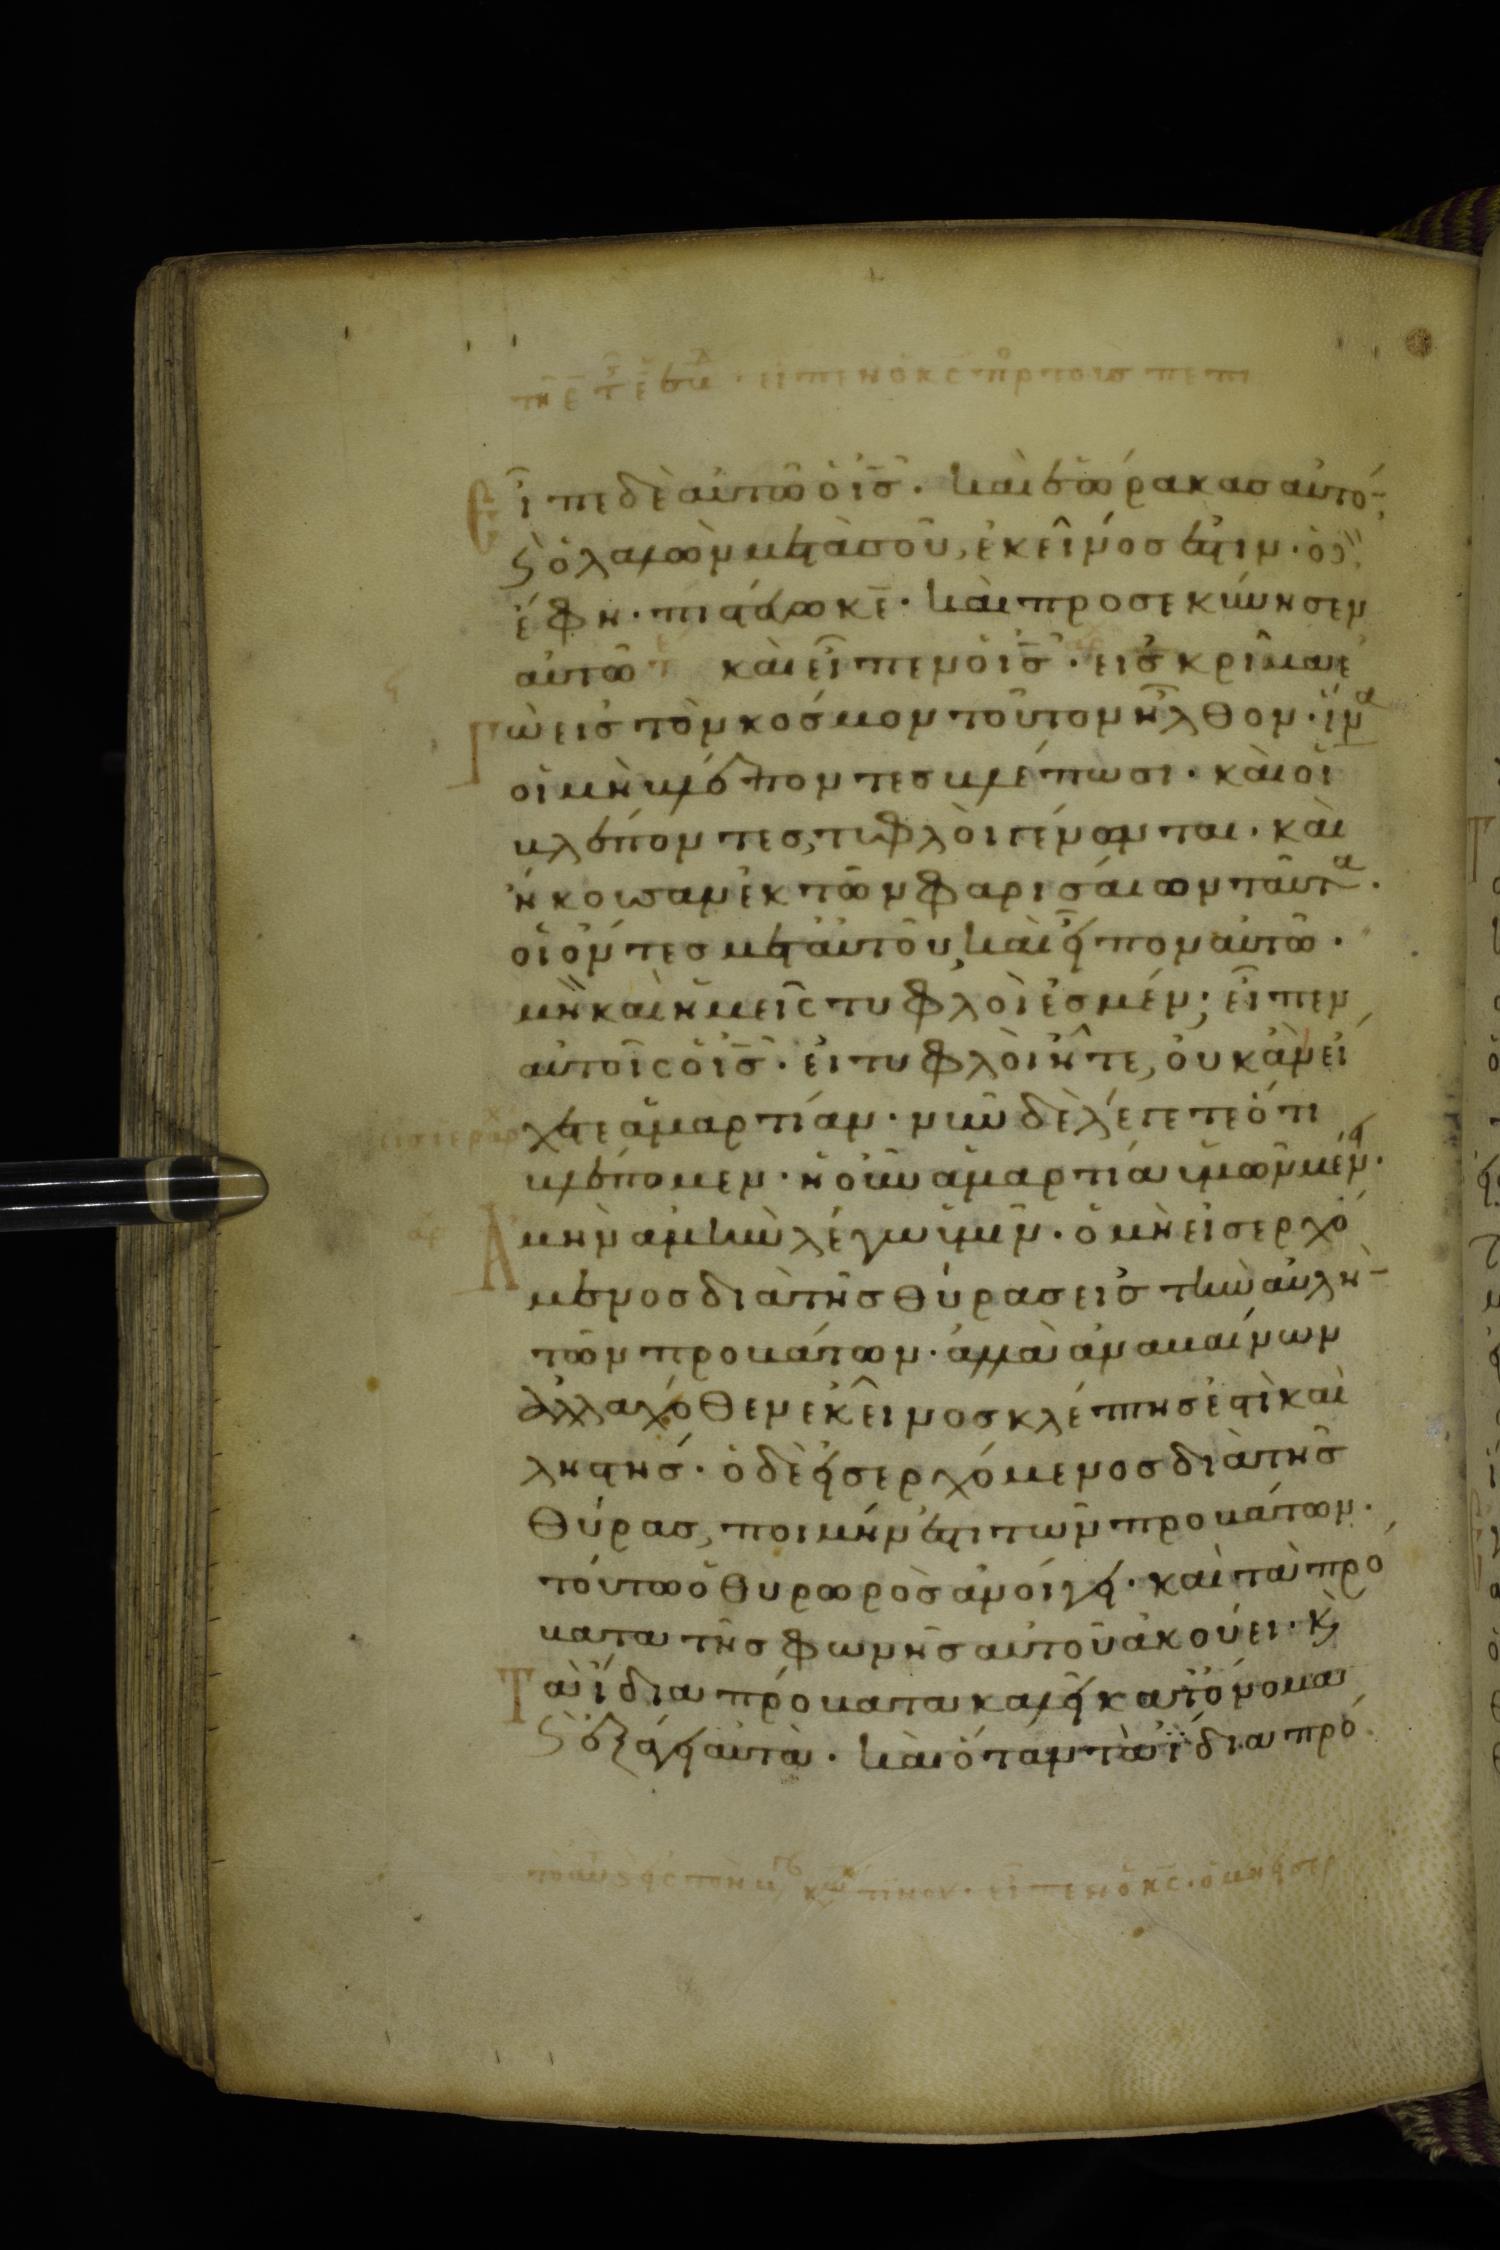 Εἶπε δὲ αὐτῶ ὁ ισ̅. καὶ ἑώρακασ αὐτό
ϛ ὁ λαλῶν μετὰ σοῦ, ἐκεῖνόσ ἐστιν. ὁ δὲ
ἔφη. πιστεύω κε̅. καὶ προσεκύνησεν
αὐτῶ καὶ εἶπεν ὁ ισ̅. εἰσ κρῖμα ἐ
Γὼ εἰσ τὸν κόσμον τοῦτον ἦλθον. ἵνα
οἱ μὴ βλέποντεσ βλέπωσι. καὶ οἱ
βλέποντεσ, τυφλοὶ γένωνται. καὶ
ἤκουσαν ἐκ τῶν φαρισαίων ταῦτα.
οἱ ὄντεσ μετ αὐτοῦ, καὶ εἶπον αὐτῶ.
μὴ καὶ ἡμεῖς τυφλοί ἐσμέν; εἶπεν
αὐτοῖς ὁ ισ̅. εἰ τυφλοὶ ἦτε, οὐκ ἂν εἴ
χετε ἁμαρτίαν. νῦν δὲ λέγετε ὅτι
βλέπομεν. ἡ οὖν ἁμαρτία ὑμῶν μένει.
Ἀμὴν ἀμὴν λέγω ὑμῖν. ὁ μὴ εἰσερχό
μενοσ διὰ τῆσ θύρασ εἰσ τὴν αὐλὴ
τῶν προβάτων. ἀλλὰ ἀναβαίνων
ἀλλαχόθεν ἐκεῖνοσ κλέπτησ ἐστὶ καὶ
ληστήσ. ὁ δὲ εἰσερχόμενοσ διὰ τῆσ
θύρασ, ποιμήν ἐστι τῶν προβάτων.
τούτω ὁ θυρωρὸσ ἀνοίγει. καὶ τὰ πρό
βατα τῆσ φωνῆσ αὐτοῦ ἀκούει. κ̀
Τὰ ἴδια πρόβατα καλεῖ κατ ὄνομα
ϛ ἐξάγει αὐτά. καὶ ὅταν τὰ ἴδια πρό